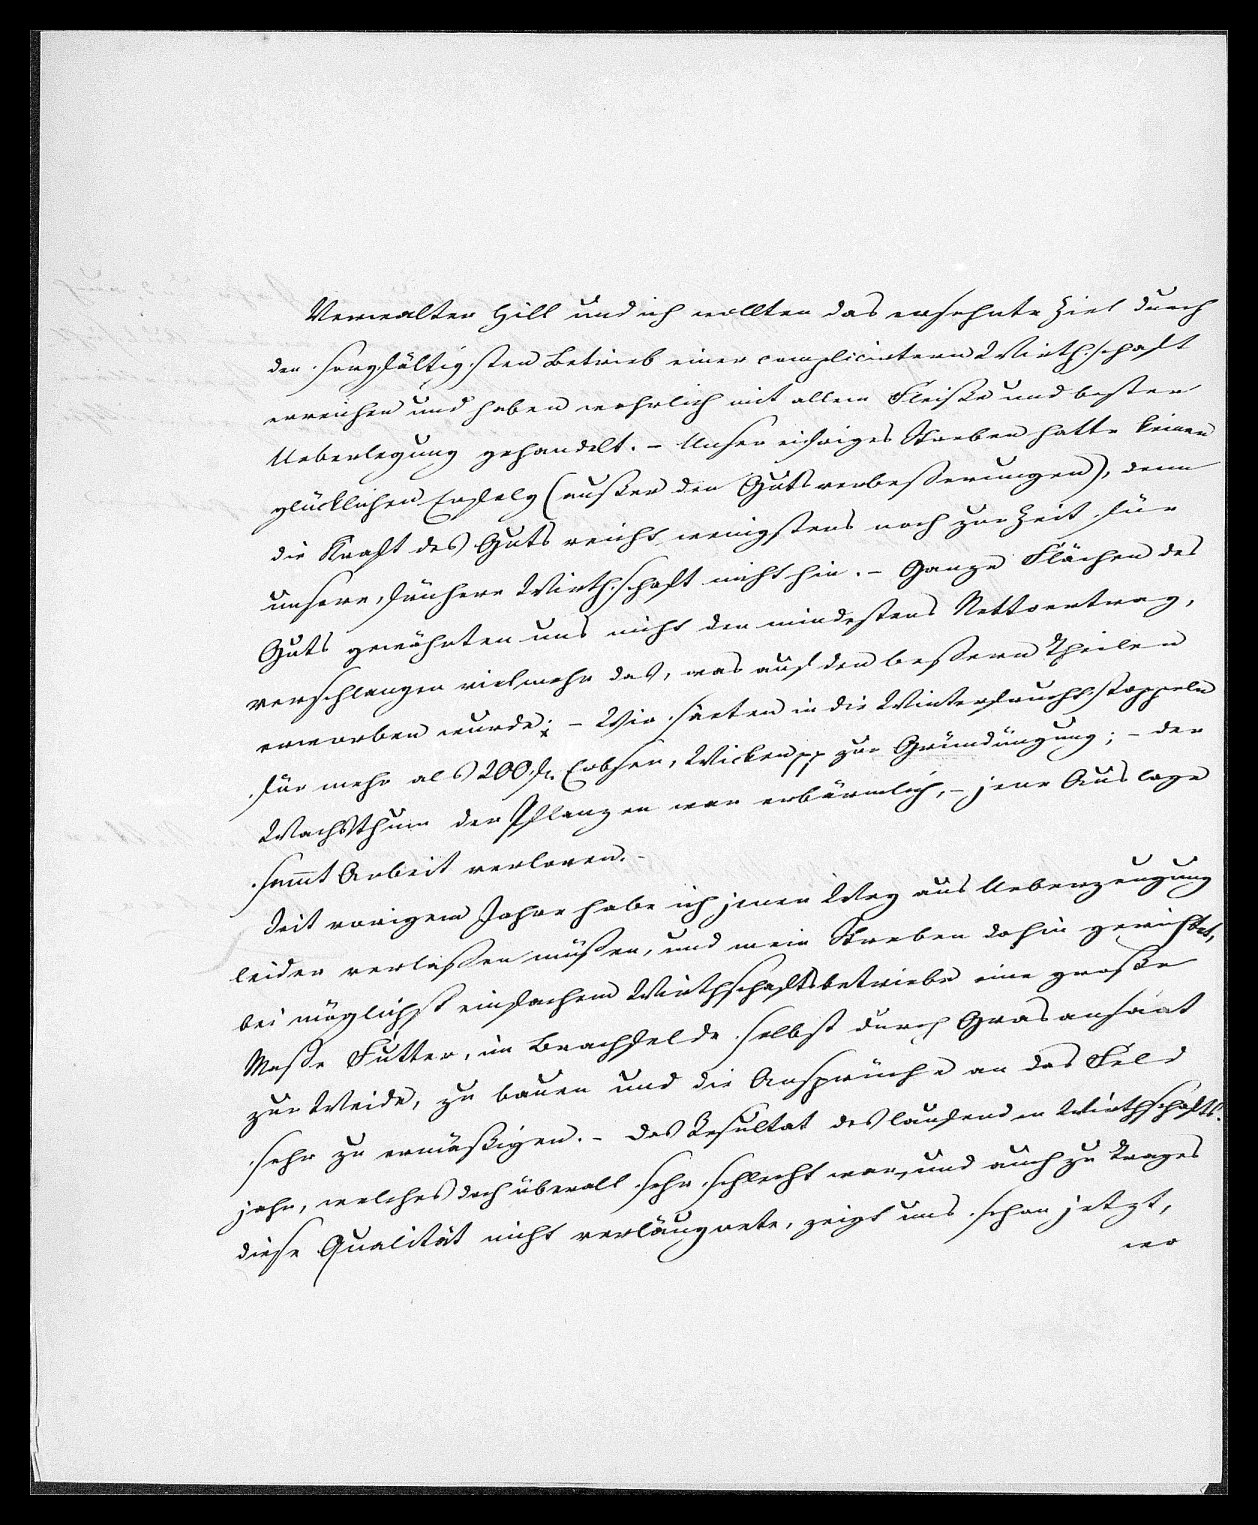 Verwalter Hill und ich wollten das ersehnte Ziel durch
den sorgfältigsten Betrieb einer complicirtern Wirthschaft
erreichen und haben wahrlich mit allem Fleiße und bester
Ueberlegung gehandelt. – Unser eifriges Streben hatte keinen
glücklichen Erfolg (außer den Gutsverbeßerungen), denn
die Kraft des Guts reicht wenigstens noch zur Zeit für
unsere frühere Wirthschaft nicht hin. – Ganze Flächen des
Guts gewährten uns nicht den mindestens Nettoertrag,
verschlangen vielmehr das, was auf den beßeren Theilen
erworben wurde; – Wir säeten in die Winterfruchtstoppeln
für mehr als 200 fr. Erbsen, Wicken pp zur Gründüngung; – der
Wachsthum der Pflanzen war erbärmlich, – jene Auslage
sammt Arbeit verloren. –
Seit vorigem Jahre habe ich jenen Weg aus Ueberzeugung
leider verlaßen müßen, und mein Streben dahin gerichtet,
bei möglichst einfachem Wirthschaftsbetriebe eine große
Maße Futter, im Brachfelde selbst durch Grasansaat
zur Weide, zu bauen und die Ansprüche an das Feld
sehr zu ermäßigen. – Das Resultat des laufenden Wirthschafts-
jahr, welches doch überall sehr schlecht war, und auch zu Trages
diese Qualität nicht verläugnete, zeigt uns schon jetzt,
wo